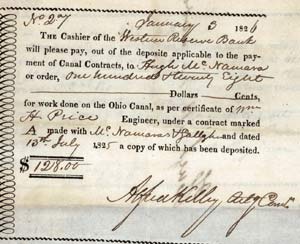 No 27 January 3 1826
THE Cashier of the Western Reserve Bank
will please pay, out of the deposite applicable to the pay-
ment of Canal Contracts, to Hugh McNamara
or order, One hundred & twenty Eight
Dollars Cents,
for work done on the Ohio Canal, as per certificate of Wm
H Price Engineer, under a contract marked
A made with McNamara & and dated
13th July 1825 a copy of which has been deposited.
$ 128.00
Alfred Kelley Actg Comr